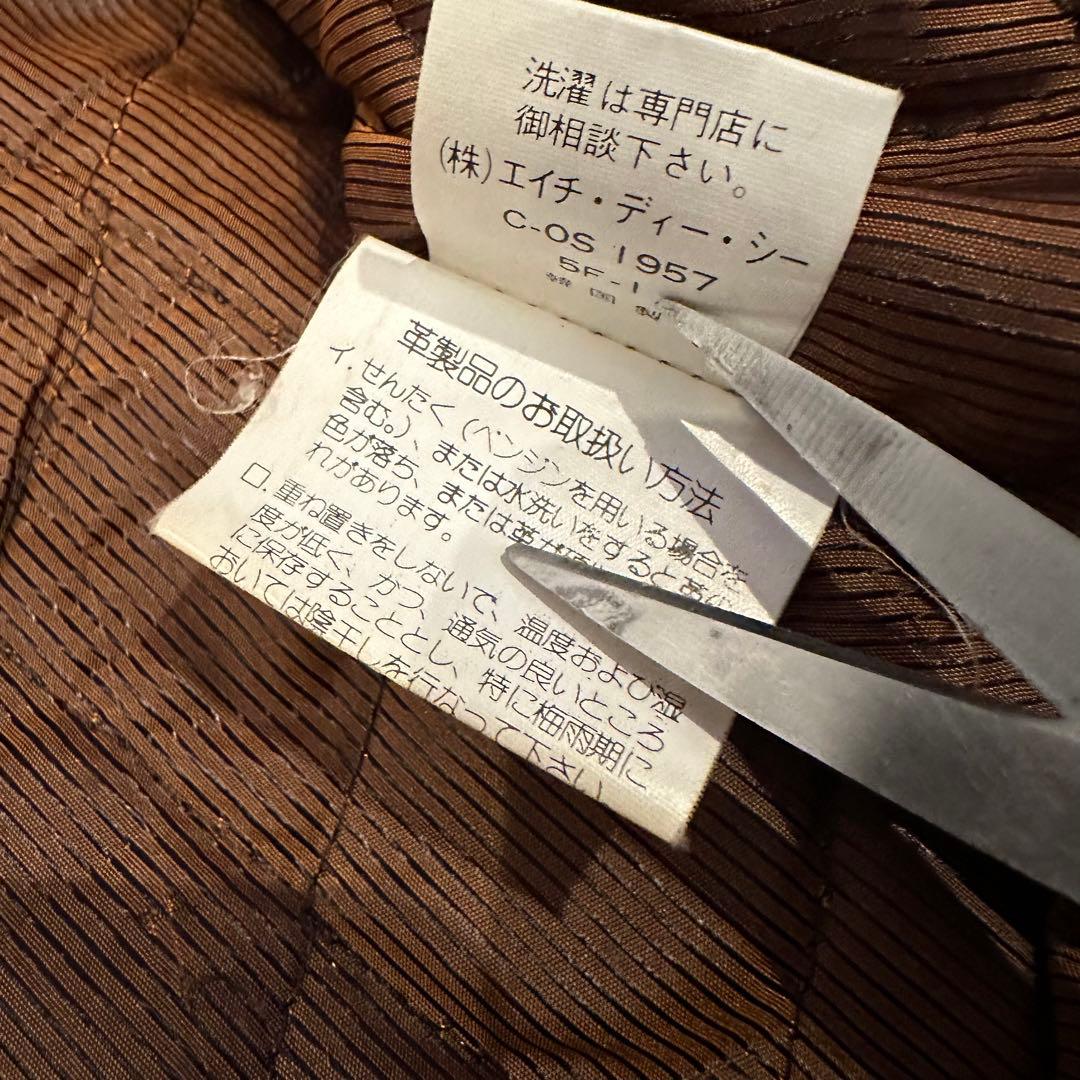 洗濯は専門店に
御相談下さい。
(株)エイチ・ディー・シー
C-OS 1957
5F-1
韓国製
革製品のお取扱い方法
イ.せんたく(ベンジンを用いる場合を
含む。)、または水洗いをすると
色が落ち、または革が
れがあります。
ロ.重ね置きをしないで、温度および湿
度が低く、かつ、通気の良いところ
に保存することとし、特に梅雨期に
おいては陰干しを行なって下さい